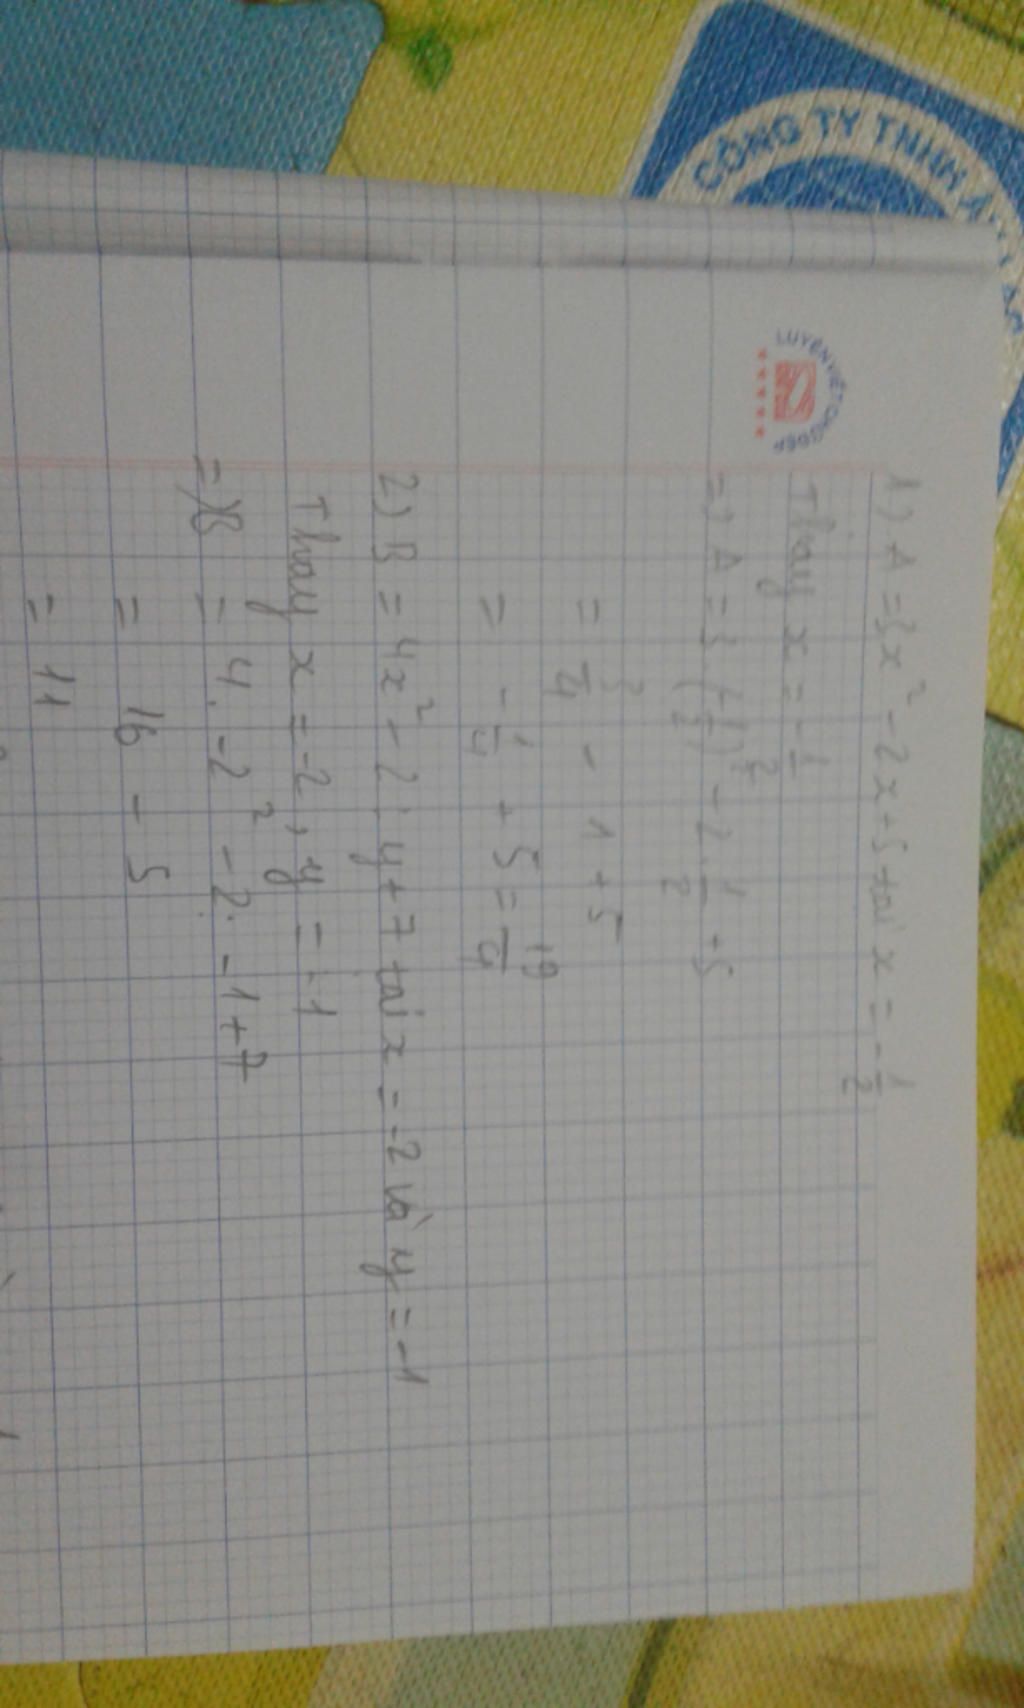 CÔNG TY TNHH
LUYỆN VIẾT CHỮ ĐẸP
1) A = 3x² - 2x + 5 tại x = -1/2
Thay x = -1/2
=> A = 3.(-1/2)² - 2.1/2 + 5
= 3/4 - 1 + 5
= -1/4 + 5 = 19/4
2) B = 4x² - 2.y + 7 tại x = -2 và y = -1
Thay x = -2, y = -1
=> B = 4. -2² - 2. -1 + 7
= 16 - 5
= 11